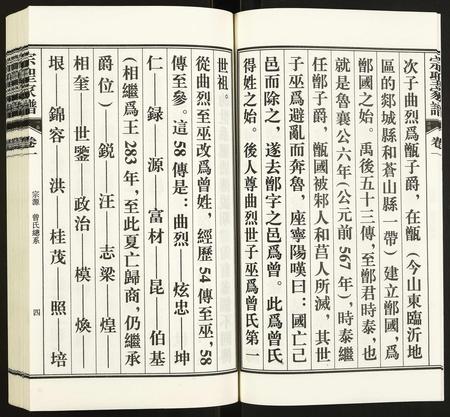 宗聖家譜
卷一
次子曲烈爲甑子爵，在甑（今山東臨沂地
區的郯城縣和蒼山縣一帶）建立鄫國，爲
鄫國之始。禹後五十三傳，至鄫君時泰，也
就是魯襄公六年（公元前567年），時泰繼
任鄫子爵，甑國被邾人和莒人所滅，其世
子巫爲避亂而奔魯，座寧陽嘆曰：國亡己
邑而除之，遂去鄫字之邑爲曾。此爲曾氏
得姓之始。後人尊曲烈世子巫爲曾氏第一
世祖。
從曲烈至巫改爲曾姓，經歷54傳至巫，58
傳至參。這58傳是：曲烈——炫忠——坤
仁——録——源——富材——昆——伯基
（相繼爲王283年，至此夏亡歸商，仍繼承
爵位）——鋭——汪——志梁——煌——
相奎——世鑒——政治——模——煥——
垠——錦容——洪——桂茂——照——培
宗聖家譜
卷一
宗源 曾氏總系
四